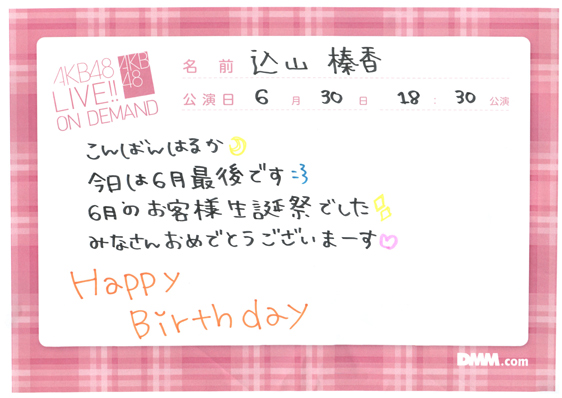 AKB48
LIVE!!
ON DEMAND
AKB
48
名前 込山 榛香
公演日 6月 30日 18:30 公演
こんばんはるか
今日は6月最後です:3
6月のお客様生誕祭でした
みなさんおめでとうございまーす♡
Happy
Birthday
DMM.com